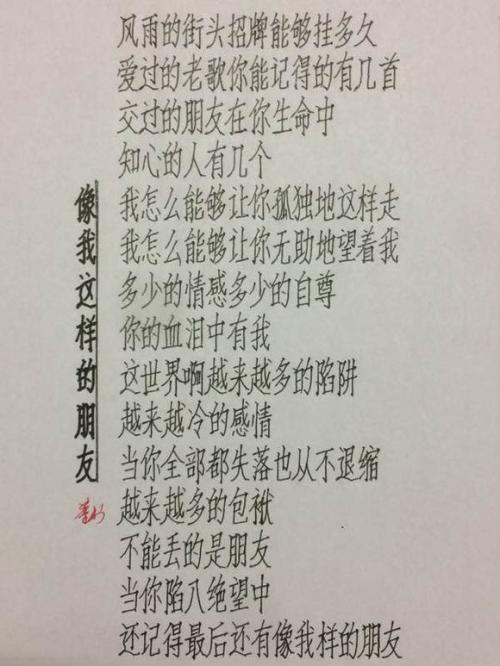 像我这样的朋友
风雨的街头招牌能够挂多久
爱过的老歌你能记得的有几首
交过的朋友在你生命中
知心的人有几个
我怎么能够让你孤独地这样走
我怎么能够让你无助地望着我
多少的情感多少的自尊
你的血泪中有我
这世界啊越来越多的陷阱
越来越冷的感情
当你全部都失落也从不退缩
越来越多的包袱
不能丢的是朋友
当你陷八绝望中
还记得最后还有像我样的朋友